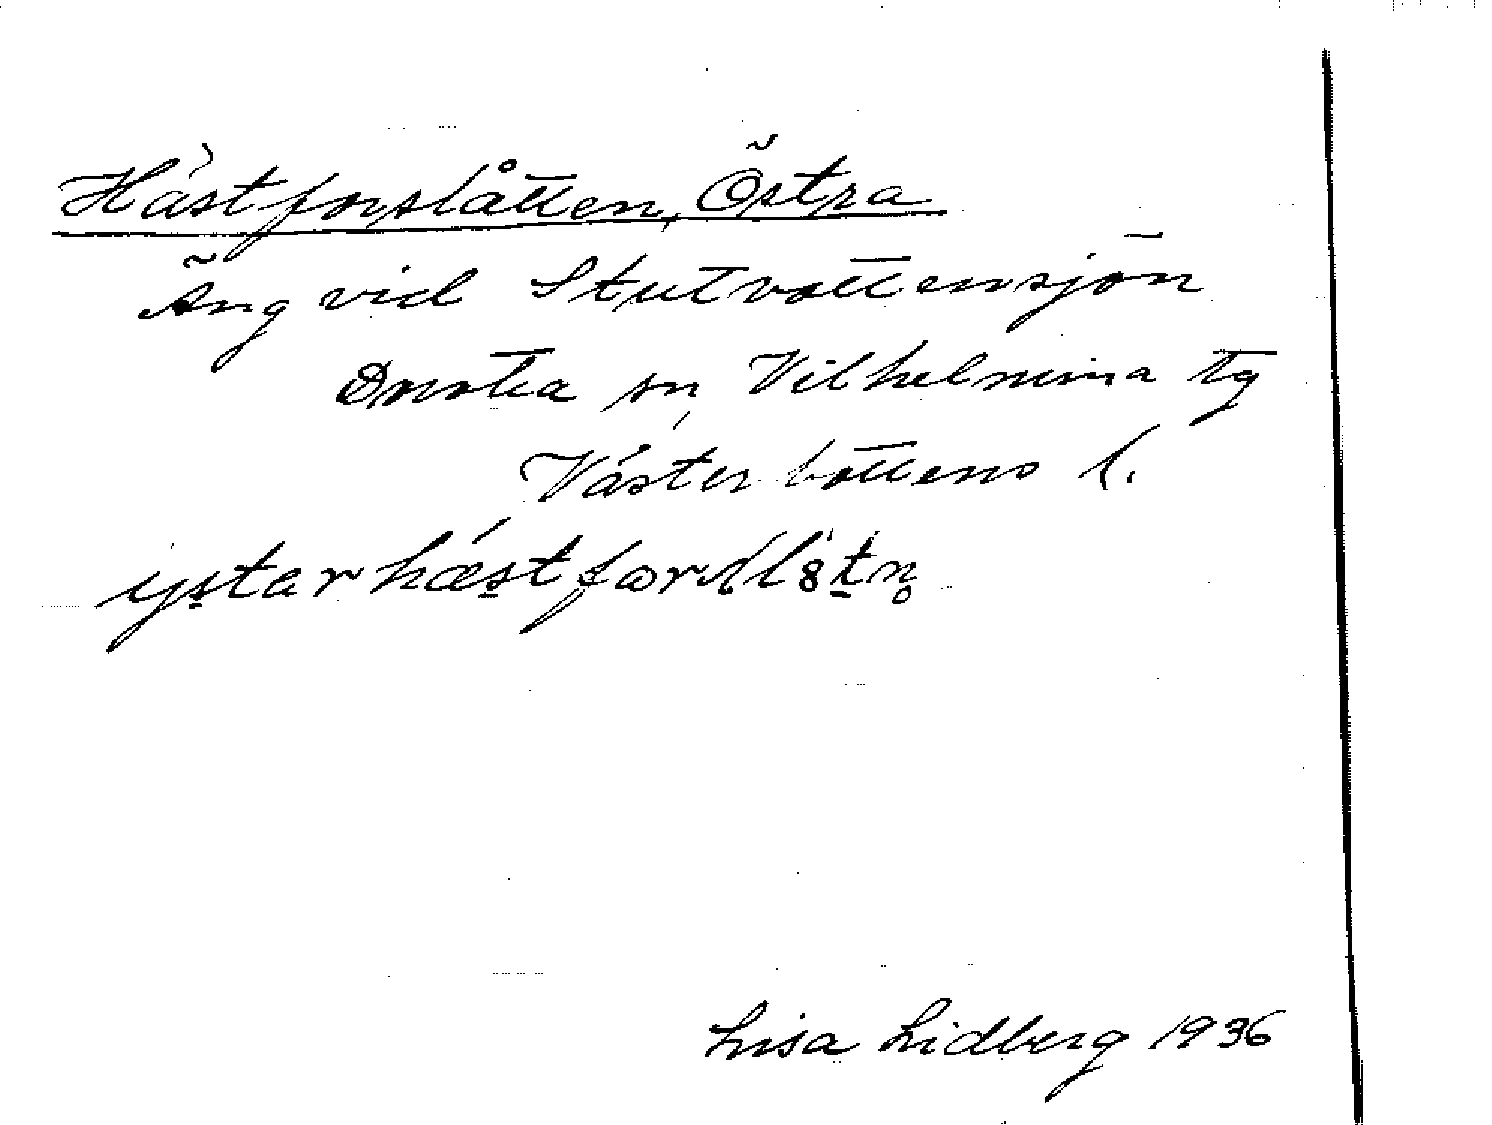 Hästforslåtten, Östra
Äng vid Stutvattensjön
Dorotea sn, Vilhelmina tg
Västerbottens l.
Lisa Lidberg 1936